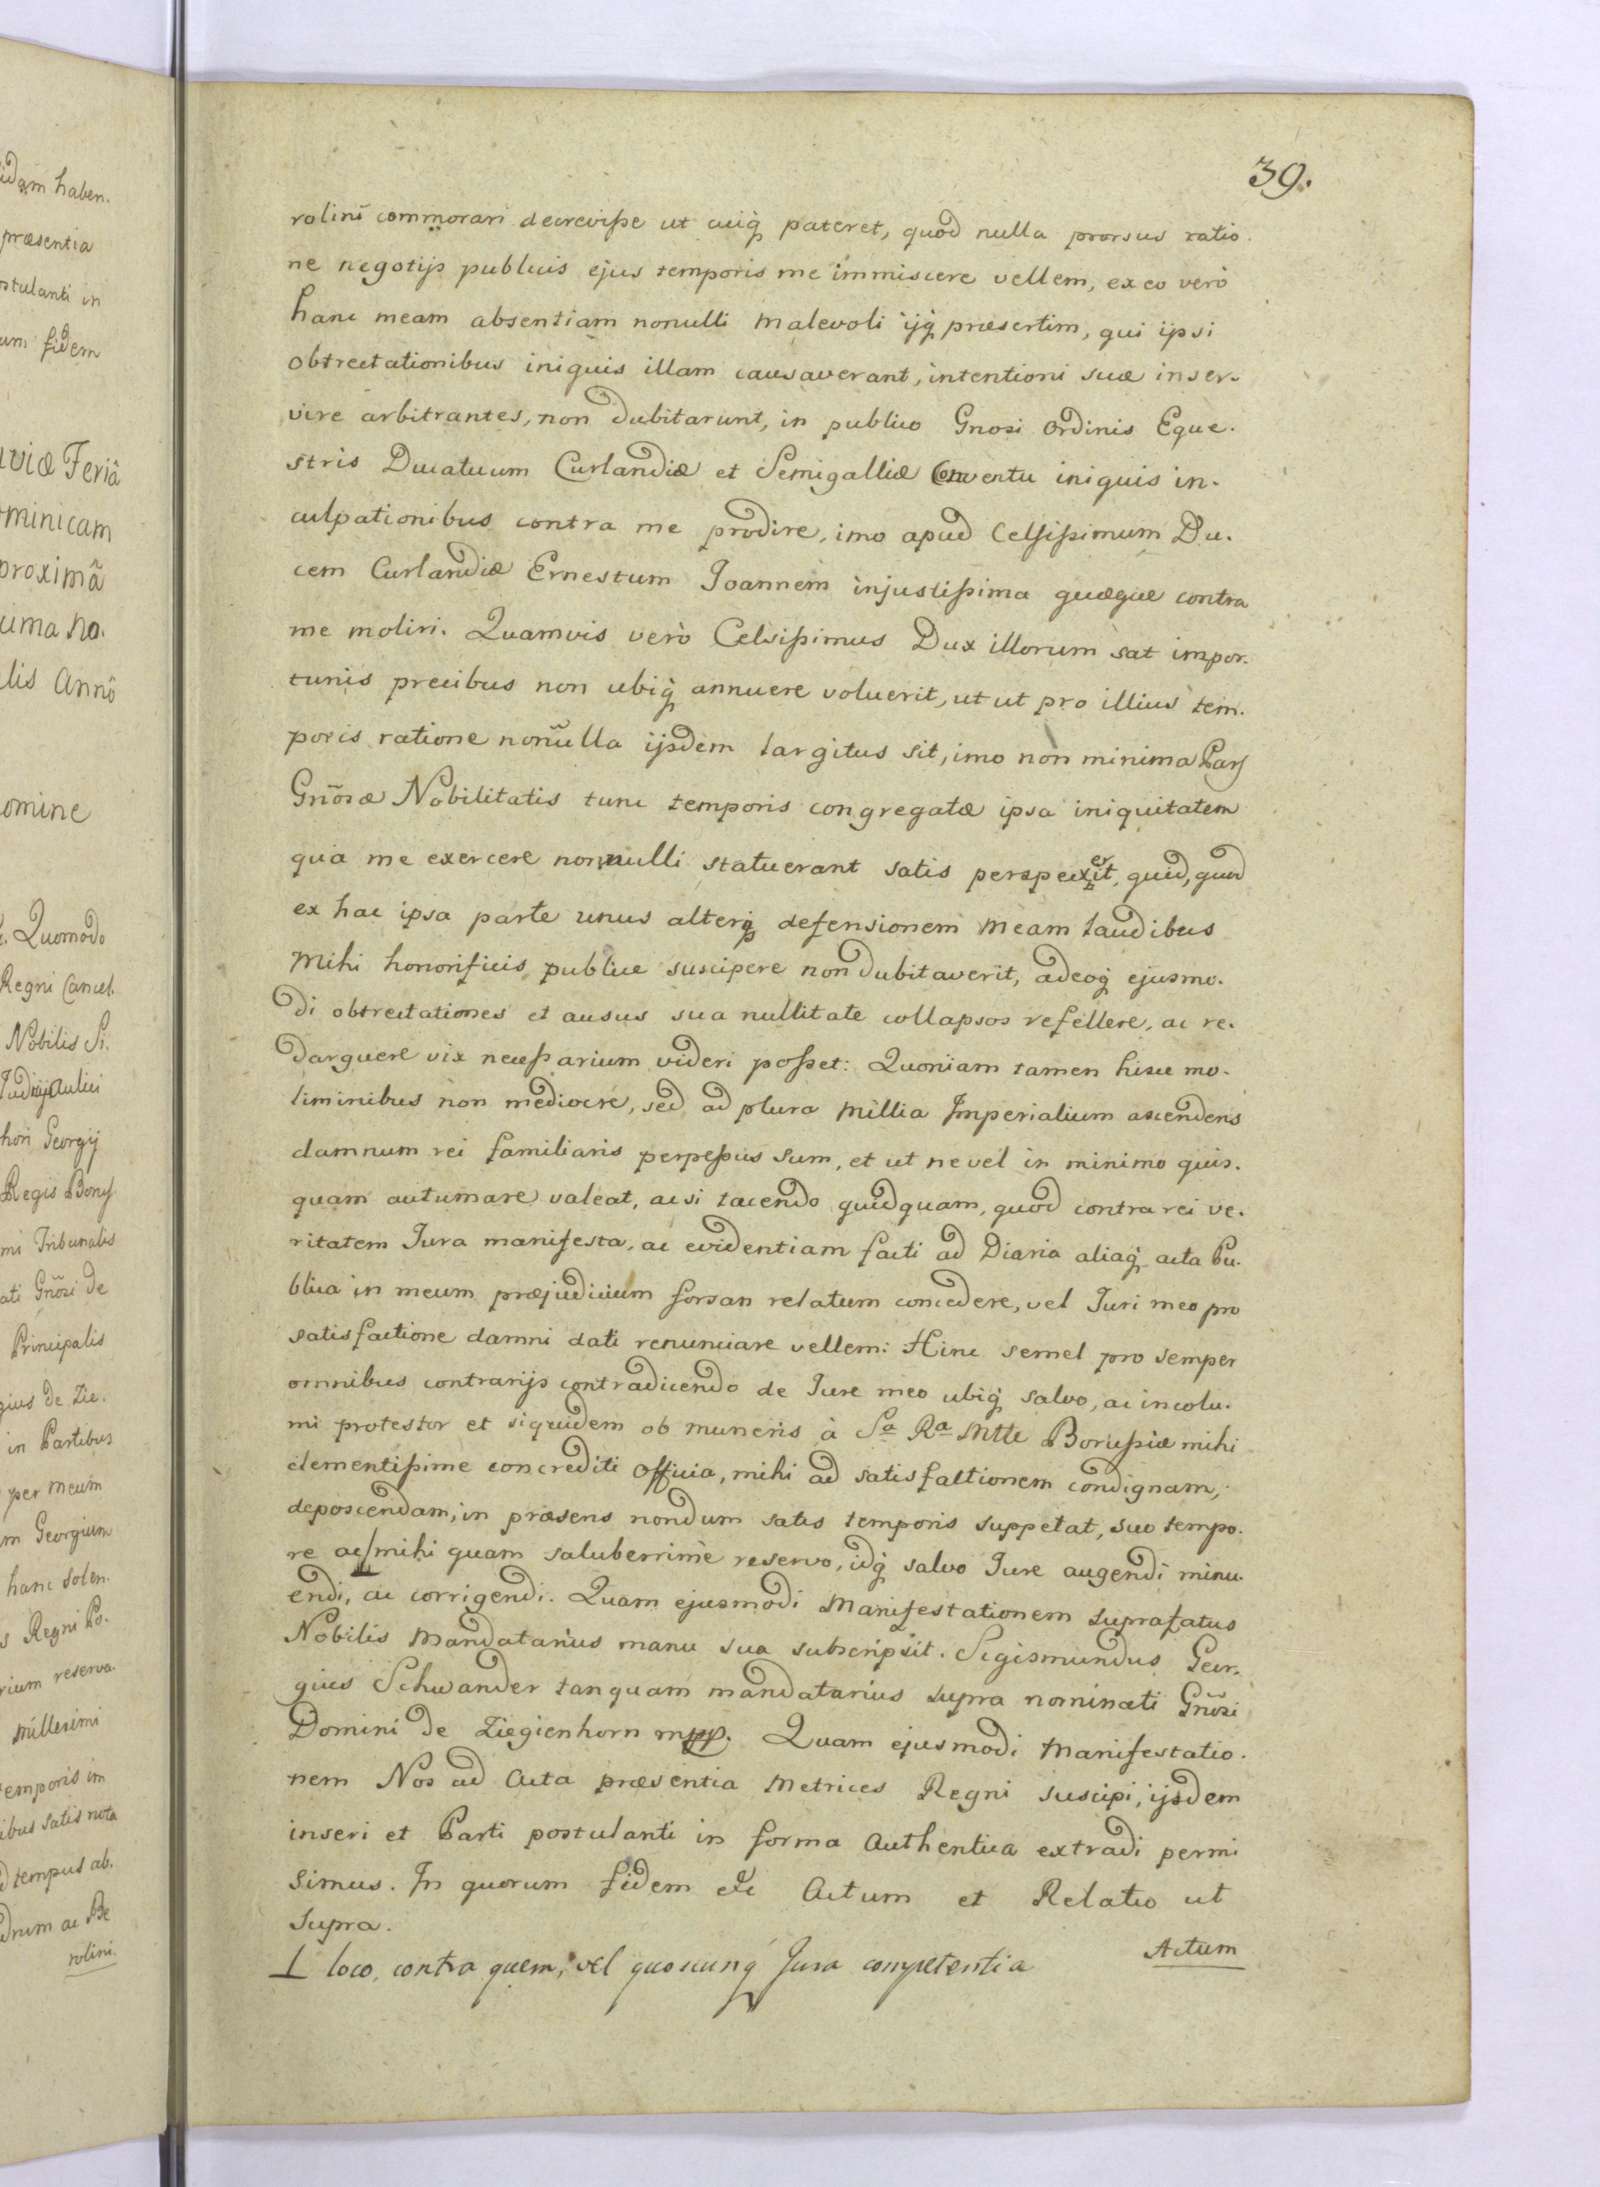 39.
rolini commorari decrevisse ut cuiq; pateret, quod nulla prorsus ratio-
ne negotijs publicis ejus temporis me immiscere vellem, ex eo vero
hanc meam absentiam nonulli malevoli ijq; præsertim, qui ipsi
obtrectationibus iniquis illam causaverant, intentioni suæ inser-
vire arbitrantes, non dubitarunt, in publico Gnosi Ordinis Eque-
stris Ducatuum Curlandiæ et Semigalliæ Conventu iniquis in-
culpationibus contra me prodire, imo apud Celsissimum Du-
cem Curlandiæ Ernestum Joannem injustissima quæque contra
me moliri. Quamvis verò Celsissimus Dux illorum sat impor-
tunis precibus non ubiq; annuere voluerit, ut ut pro illius tem-
poris ratione nonulla ijsdem largitus sit, imo non minima Pars
Gnõsæ Nobilitatis tunc temporis congregatæ ipsa iniquitatem
qua me exercere nonnulli statuerant satis perspexerit, quid, quod
ex hac ipsa parte unus alterq; defensionem meam laudibus
mihi honorificis publice suscipere non dubitaverit, adeoq; ejusmo-
di obtrectationes et ausus sua nullitate collapsos refellere, ac re-
darguere vix necessarium videri posset: Quoniam tamen hisce mo-
liminibus non mediocre, sed ad plura millia Imperialium ascendens
damnum rei familiaris perpessus sum, et ut ne vel in minimo quis-
quam autumare valeat, ac si tacendo quidquam, quod contra rei ve-
ritatem Jura manifesta, ac evidentiam facti ad Diaria aliaq; acta Pu-
blica in meum præjudicium forsan relatum concedere, vel Juri meo pro
satisfactione damni dati renunciare vellem: Hinc semel pro semper
omnibus contrarijs contradicendo de Jure meo ubiq; salvo, ac incolu-
mi protestor et siquidem ob muneris à Sa Ra Mtte Borussiæ mihi
clementissime concrediti officia, mihi ad satisfactionem condignam,
deposcendam, in præsens nondum satis temporis suppetat, suo tempo-
re ac ⊥ mihi quam saluberrime reservo, idq; salvo Jure augendi minu-
endi, ac corrigendi. Quam ejusmodi Manifestationem suprafatus
Nobilis Mandatarius manu sua subscripsit. Sigismundus Geor-
gius Schwander tanquam mandatarius supra nominati Gnõsi
Domini de Ziegienhorn mpp. Quam ejusmodi Manifestatio-
nem Nos ad Acta præsentia Metrices Regni suscipi, ijsdem
inseri et Parti postulanti in forma Authentica extradi permi
simus. In quorum fidem etc Actum et Relatio ut
supra.
Actum
⊥ loco, contra quem, vel quoscunq; Jura competentia